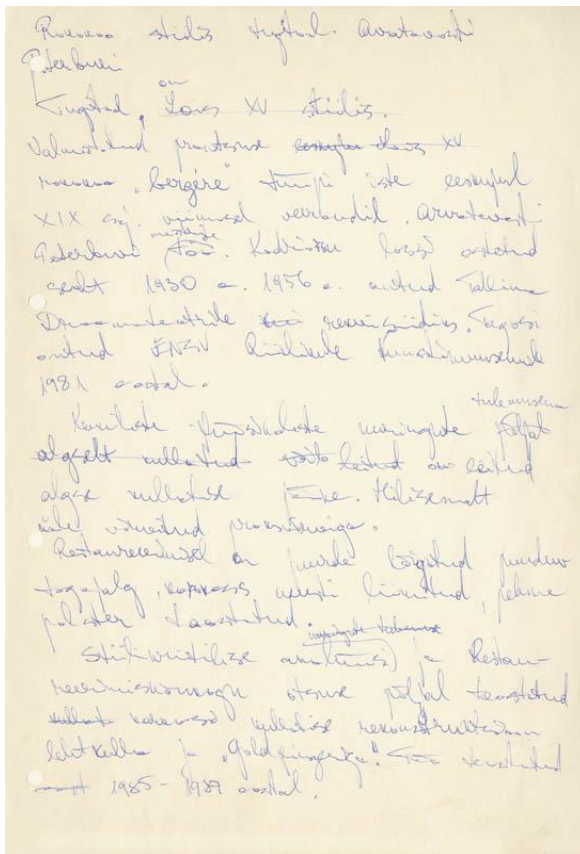 Rokokoo stiilis tugitool. Arvatavasti
Peterburi
on
Tugitool, Louis XV stiilis.
Valmistatud prantsuse Louis XV
rokokoo "bergère" tüüpi iste eeskujul
XIX saj. viimasel veerandil, arvatavasti
Peterburi meistrite töö. Kadrioru lossi ostetud
sealt 1930 a. 1956 a. antud Tallinna
Draamateatrile rekvisiidiks. Tagasi
antud ENSV Riiklikule Kunstimuuseumile
1981 aastal.
Keemiliste-füüsikaliste uuringute tulemusena põhjal
algselt kullatud leitud on leitud
algse kullatise jälgi. Hilisemalt
üle värvitud pronksvärviga.
Restaureerimisel on juurde lõigatud puuduv
tagajalg, karkass uuesti liimitud, pehme
polster taastatud.
uuringute tulemuse
Stiilikriitilise analüüsi ja Restau-
reerimisnõukogu otsuse põhjal teostatud
karkassi kullatise rekonstruktsioon
lehtkulla ja "Goldfingeriga". Töö teostatud
1985-1987 aastal.